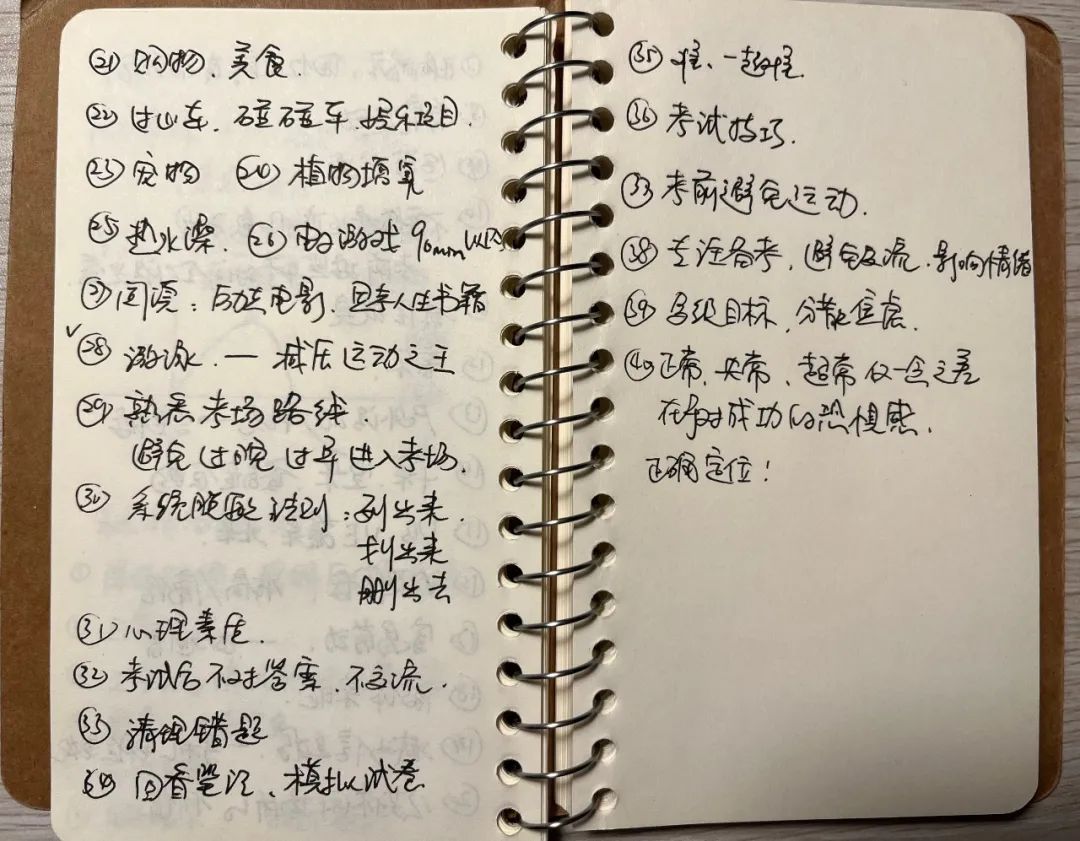 ㉑ 购物、美食
㉒ 过山车、碰碰车、娱乐项目.
㉓ 宠物 ㉔ 植物
㉕ 热水澡. ㉖ 电子游戏 90min以内
㉗ 阅读:励志电影、四季人生书籍
√㉘ 游泳.—减压运动之王
㉙ 熟悉考场路线.
避免过晚过早进入考场.
㉚ 系统脱敏法则:列出来.
划出来
删出去
㉛ 心理素质.
㉜ 考试后不对答案、不交流.
㉝ 清理错题
㉞ 回看笔记、模拟试卷
㉟ 难、一起难.
㊱ 考试技巧.
考前避免运动.
㊳ 专注备考,避免交流.影响情绪
㊴ 多级目标,分散焦虑.
㊵ 正常、失常、超常仅一念之差
对成功的恐惧感.
正确定位!